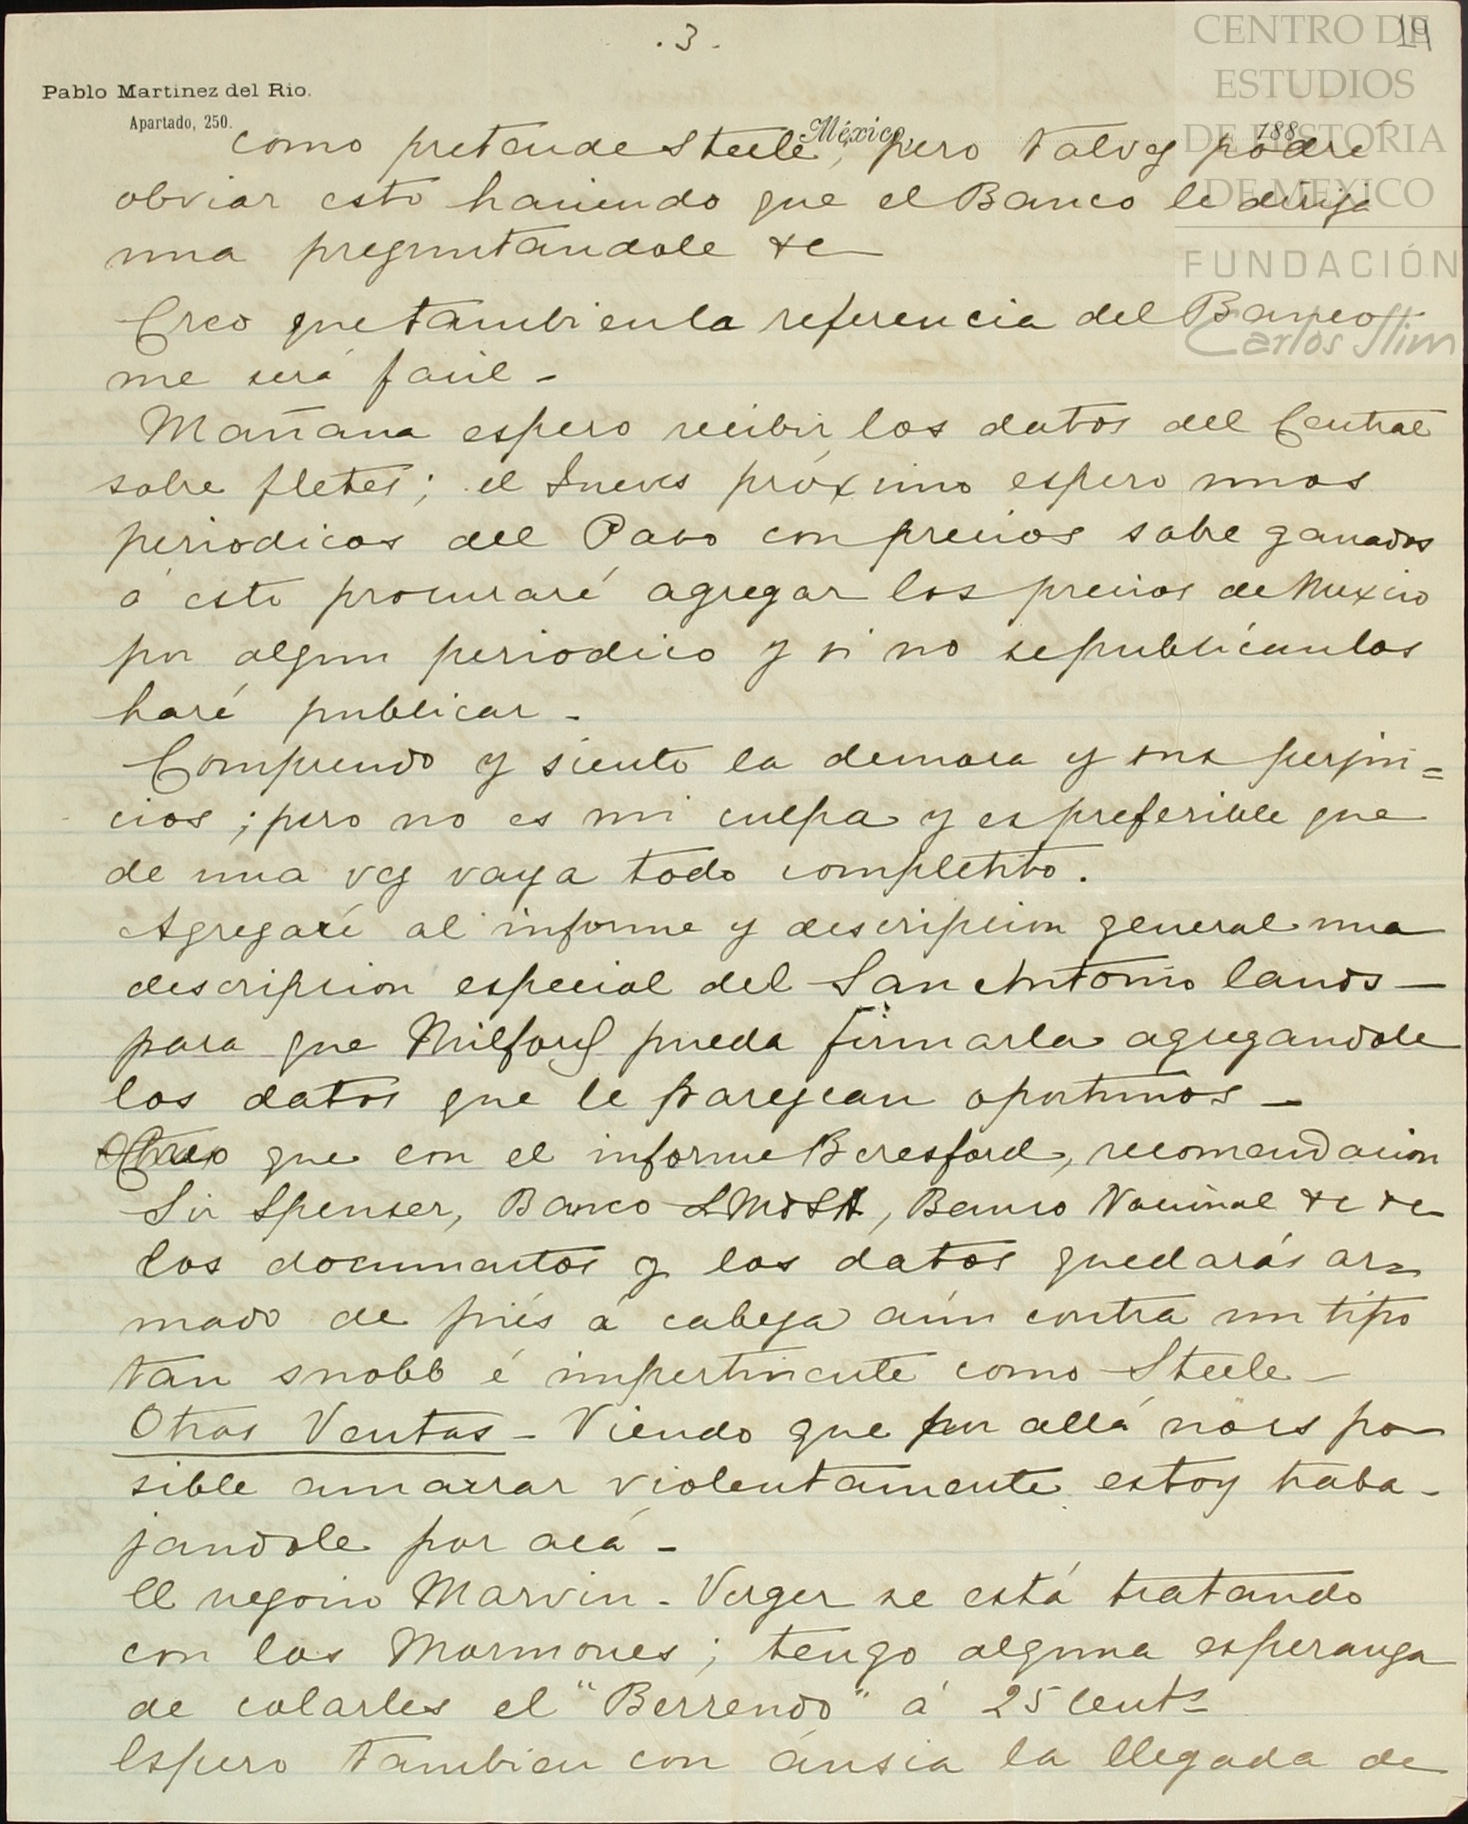 .3.
19
CENTRO DE
ESTUDIOS
DE HISTORIA
DE MEXICO
FUNDACIÓN
Carlos Slim
Pablo Martinez del Rio.
Apartado, 250.
México, 188
como pretende Steele, pero talvez podré
obviar esto haciendo que el Banco le dirija
una preguntandole &c
Creo que tambien la referencia del Banco
me será facil -
Mañana espero recibir los datos del Central
sobre fletes; el Jueves próximo espero unos
periodicos del Paso con precios sobre ganados
á esto procuraré agregar los precios de Mexico
por algun periodico y si no se publícan los
haré publicar -
Comprendo y siento la demora y sus perjui=
cios; pero no es mi culpa y es preferible que
de una vez vaya todo completito.
Agregaré al informe y descripcion general una
descripcion especial del San Antonio lands -
para que Milford pueda firmarla agregandole
los datos que le parezcan oportunos -
Creo que con el informe Beresford, recomendacion
Sir Spenser, Banco LM&SA, Banco Nacional &c &c
los documentos y los datos quedarás ar=
mado de piés á cabeza aún contra un tipo
tan snobb é impertinente como Steele -
Otras Ventas - Viendo que por allá no es po-
sible amarrar violentamente estoy traba-
jandole por acá -
El negocio Marvin - Verger se está tratando
con los Mormones; tengo alguna esperanza
de colarles el "Berrendo" á 25 Cents
Espero tambien con ánsia la llegada de